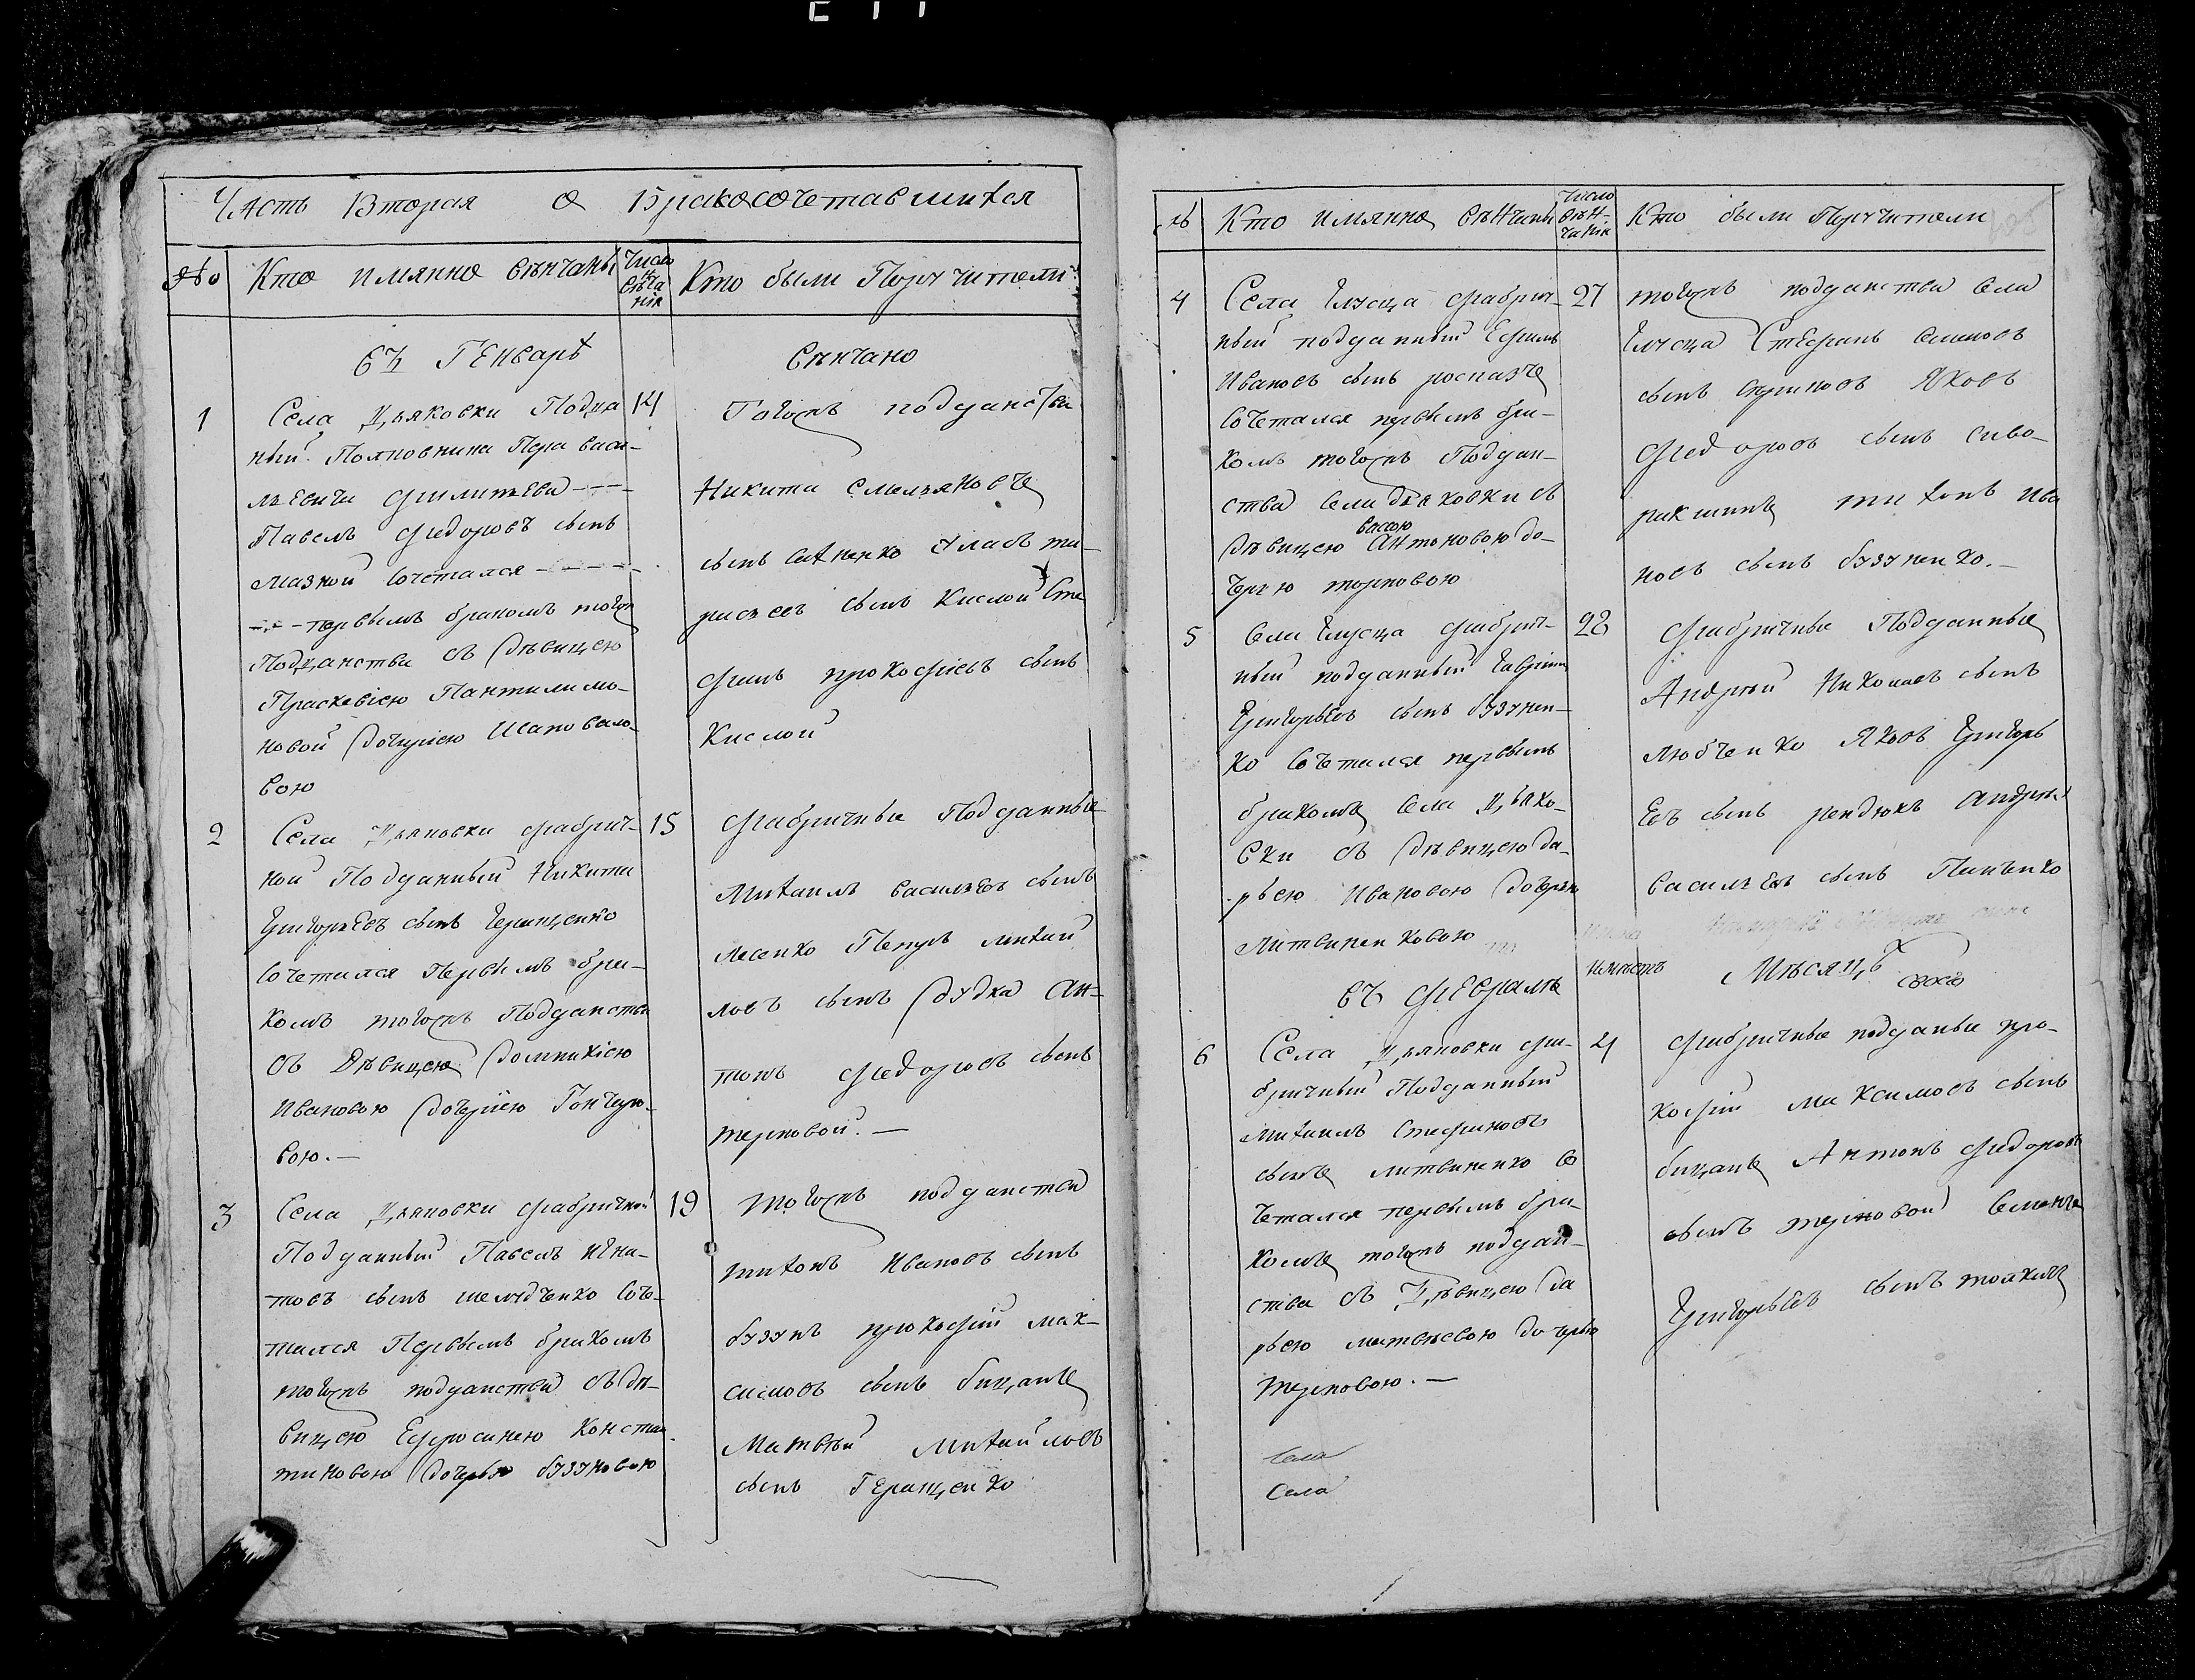 Часть Вторая о Бракосочетавшихся
№ Кто имянно венчаны Число венчания Кто были Поручители
въ Генваре венчано
1 Села Дьяковки Подда 14
ный Полковника Петра Васи-
льевича
Павелъ Федоровъ сынъ
Мазной сочетался
первымъ бракомъ тогожъ
Подданства съ девицею
Праскевiею Пантилимо-
новой дочерiею Шаповало-
вою
Тогожъ подданства
Никита Емельяновъ
сынъ
сынъ Кислой Сте
фанъ прокофiевъ сынъ
Кислой
2 Села Дьяковки фабрич- 15
ной Подданный Никита
Григорьевъ сынъ Геращенко
сочетался первымъ бра-
комъ тогожъ Подданства
съ Девицею Домникiею
Ивановою дочерiею Гончаро-
вою.—
Фабричные Подданные
Михаилъ васильевъ сынъ
лесенко
ловъ сынъ дудка Ан-
тонъ федоровъ сынъ
терновой.—
3 Села Дьяковки фабричной 19
Подданный Павелъ Игна-
товъ сынъ шелудченко соче-
тался Первымъ бракомъ
тогожъ подданства съ де-
вицею Ефросинею Констан-
тиновою дочерью бузуновою
Тогожъ подданства
тихонъ Ивановъ сынъ
бузунъ прокофiй мак-
симовъ сынъ бицанъ
Матвей михайловъ
сынъ Геращенко
№ Кто имянно венчаны Число венчания Кто были Поручители
4 Села Глусца фабрич- 27
ный подданный Ефимъ
Ивановъ сынъ
сочетался первымъ бра-
комъ тогожъ Поддан-
ства села дьяковки съ
девицею Антоновою до-
черю терновою
тогожъ подданства села
Глусца Стефанъ семеновъ
сынъ Яковъ
федоровъ сынъ сиво-
тихонъ ива
новъ сынъ бузуненко.—
5 Села Глусца фабрич- 28
ный подданный Гаврiилъ
Григорьевъ сынъ бузунен-
ко сочетался первымъ
бракомъ села Дьяко-
вки съ девицею да-
рьею Ивановою дочерью
Литвиненковою
Фабричные Подданные
Андрей Николаевъ сынъ
любченко Яковъ Григорь
евъ сынъ рендюкъ андрей
васильевъ сынъ
въ феврале
Месяцъ
6 Села Дьяковки фа- 4
бричный Подданный
михаилъ Стефановъ
сынъ литвиненко со
четался первымъ бра-
комъ тогожъ поддан-
ства съ Девицею да
рьею матвеевою дочерью
терновою.—
Фабричные подданые про-
кофiй максимовъ сынъ
бицанъ Антонъ федоровъ
сынъ терновой Семенъ
Григорьевъ сынъ
села
Села